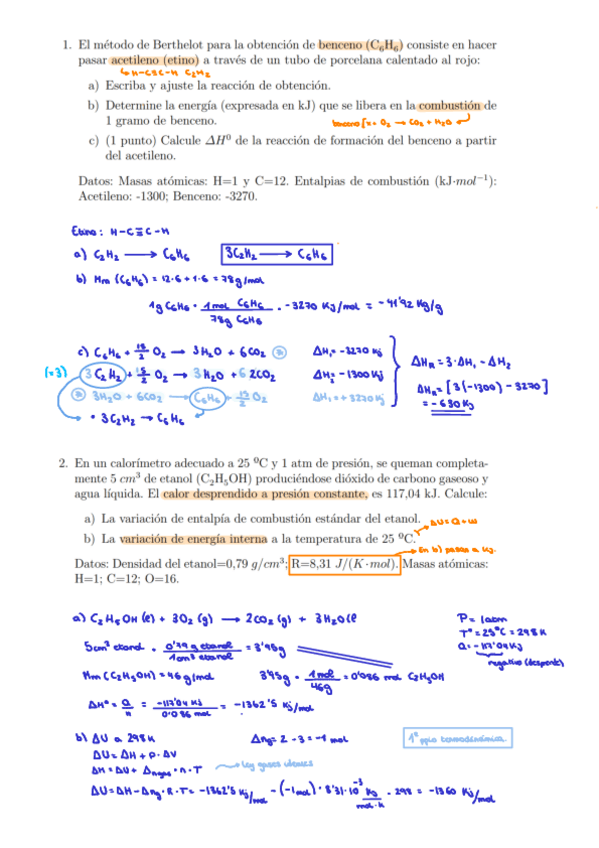 1. El método de Berthelot para la obtención de benceno (C₆H₆) consiste en hacer
pasar acetileno (etino) a través de un tubo de porcelana calentado al rojo:
↳ H-C≡C-H C₂H₂
a) Escriba y ajuste la reacción de obtención.
b) Determine la energía (expresada en kJ) que se libera en la combustión de
1 gramo de benceno.
O₂ → CO₂ + H₂O
c) (1 punto) Calcule ΔH⁰ de la reacción de formación del benceno a partir
del acetileno.
Datos: Masas atómicas: H=1 y C=12. Entalpias de combustión (kJ·mol⁻¹):
Acetileno: -1300; Benceno: -3270.
Etino: H-C≡C-H
a) C₂H₂ → C₆H₆ 3C₂H₂ → C₆H₆
b) Mm (C₆H₆) = 12·6 + 1·6 = 78g/mol
1g C₆H₆ · 1 mol C₆H₆ / 78g C₆H₆ · -3270 Kj/mol = -41'92 Kg/g
c) C₆H₆ + 15/2 O₂ → 3H₂O + 6CO₂ ΔH₁= -3270 Kj
(·3) 3C₂H₂ + 15/2 O₂ → 3H₂O + 6 2CO₂ ΔH₂= -1300 Kj ΔHR = 3·ΔH₂ - ΔH₁
3H₂O + 6CO₂ → C₆H₆ + 15/2 O₂ ΔH₁= + 3270 Kj ΔHR= [3(-1300) - 3270]
• 3C₂H₂ → C₆H₆ = -630 Kj
2. En un calorímetro adecuado a 25 ⁰C y 1 atm de presión, se queman completa-
mente 5 cm³ de etanol (C₂H₅OH) produciéndose dióxido de carbono gaseoso y
agua líquida. El calor desprendido a presión constante, es 117,04 kJ. Calcule:
a) La variación de entalpía de combustión estándar del etanol.
ΔU = Q + W
b) La variación de energía interna a la temperatura de 25 ⁰C.
En b) pasas a Kj.
Datos: Densidad del etanol=0,79 g/cm³; R=8,31 J/(K·mol). Masas atómicas:
H=1; C=12; O=16.
a) C₂H₅OH (l) + 3O₂ (g) → 2CO₂ (g) + 3H₂O(l P = 1atm
5cm³ etanol · 0'79 g etanol / 1cm³ etanol = 3'95g T° = 25°C = 298K
Q = -117'04 Kj
negativo (desprende)
Mm (C₂H₅OH) = 46g/mol 3'95g · 1 mol / 46g = 0'086 mol C₂H₅OH
ΔH° = Q/n = -117'04 Kj / 0'086 mol = -1362'5 Kj/mol
b) ΔU a 298K Δng = 2 - 3 = -1 mol 1º ppio termodinámica.
ΔU = ΔH + P · ΔV
ΔH = ΔU + Δngas · R · T → Ley gases ideales
ΔU = ΔH - Δng · R · T = -1362'5 Kj/mol - (-1mol) · 8'31·10⁻³ Kg/mol·K · 298 = -1360 Kj/mol